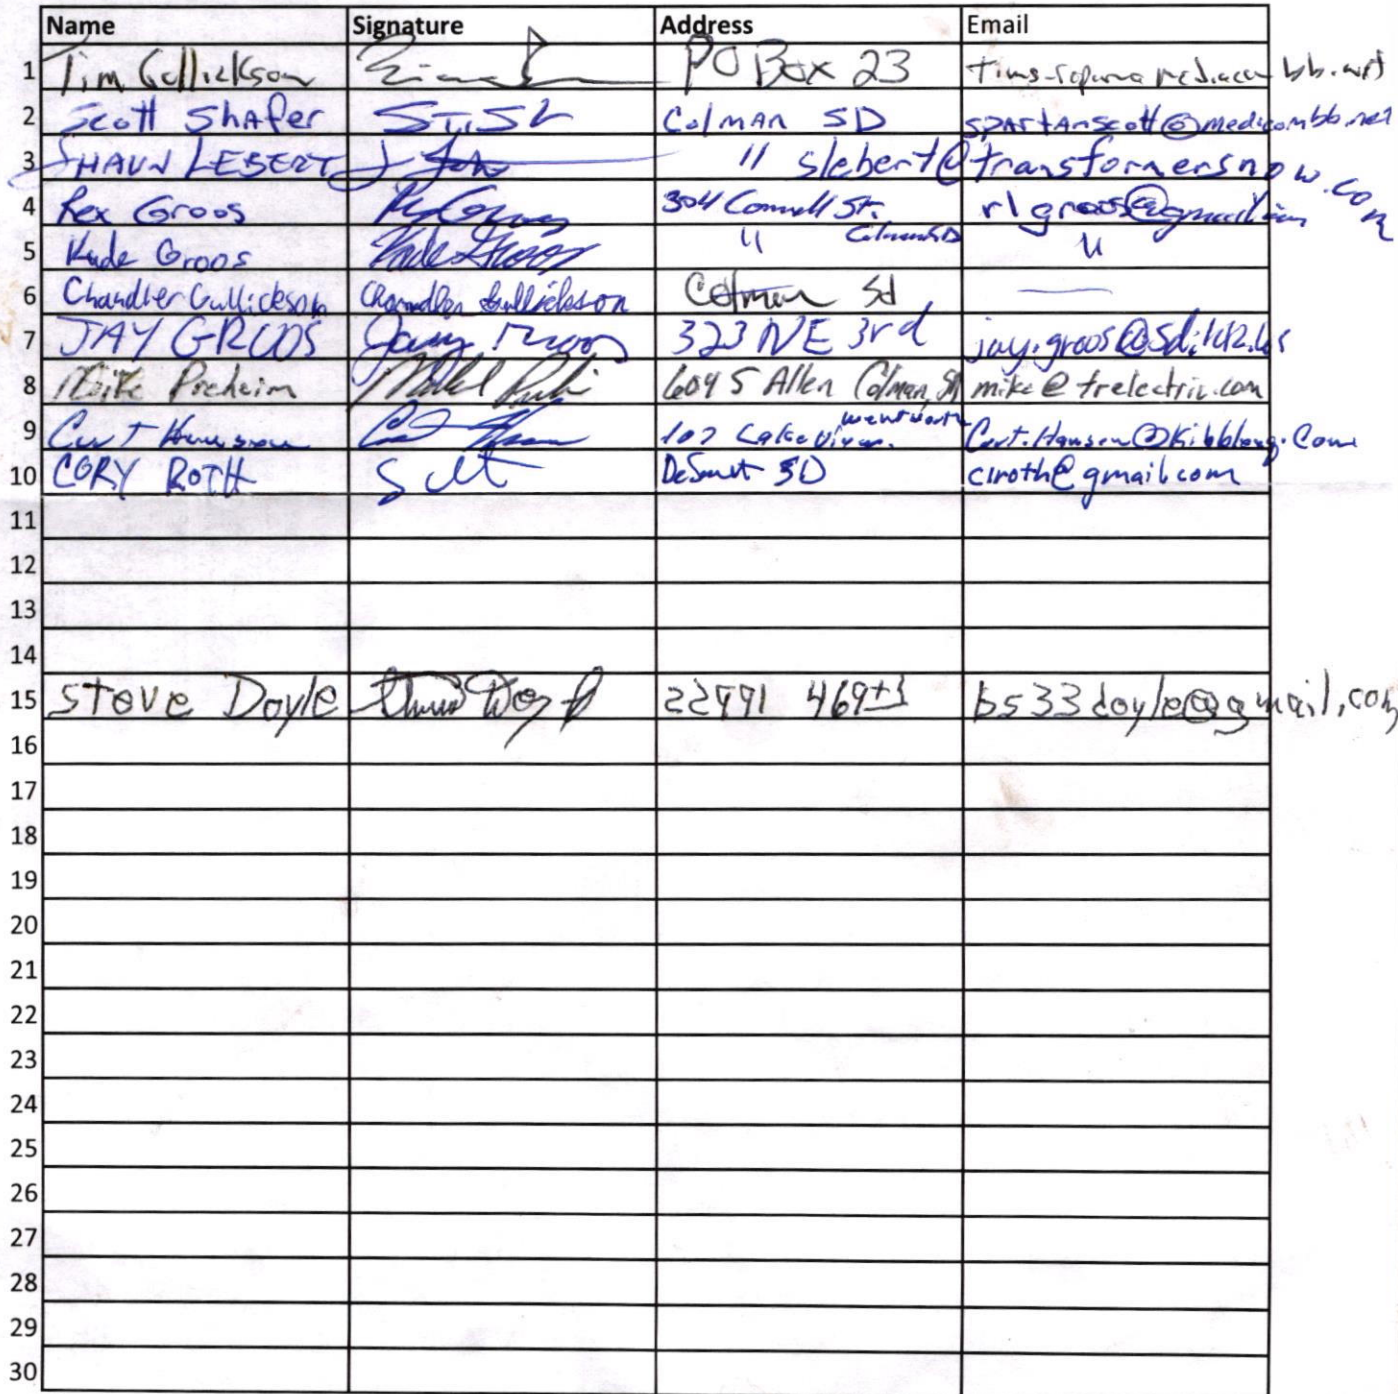 Name Signature Address Email
1 Tim Gullickson PO Box 23
2 Scott Shafer Colman SD spartanscott@mediacombb.net
3 SHAUN LEBERT " slebert@transformersnow.com
4 Rex Groos 304 Connell St. Colman SD rlgroos@gmail.com
5 Kade Groos Kade Groos " "
6 Chandler Gullickson Chandler Gullickson Colman Sd —
7 JAY GROOS Jay Groos 323 NE 3rd jay.groos@sd.k12.us
8 Mike Preheim 604 S Allen Colman, SD mike@trelectric.com
9 Curt 102 Lakeview Wentworth Curt.Hansen@
10 CORY ROTH DeSmet SD croth@gmail.com
11
12
13
14
15 Steve Doyle 22991 469th bs33doyle@gmail.com
16
17
18
19
20
21
22
23
24
25
26
27
28
29
30